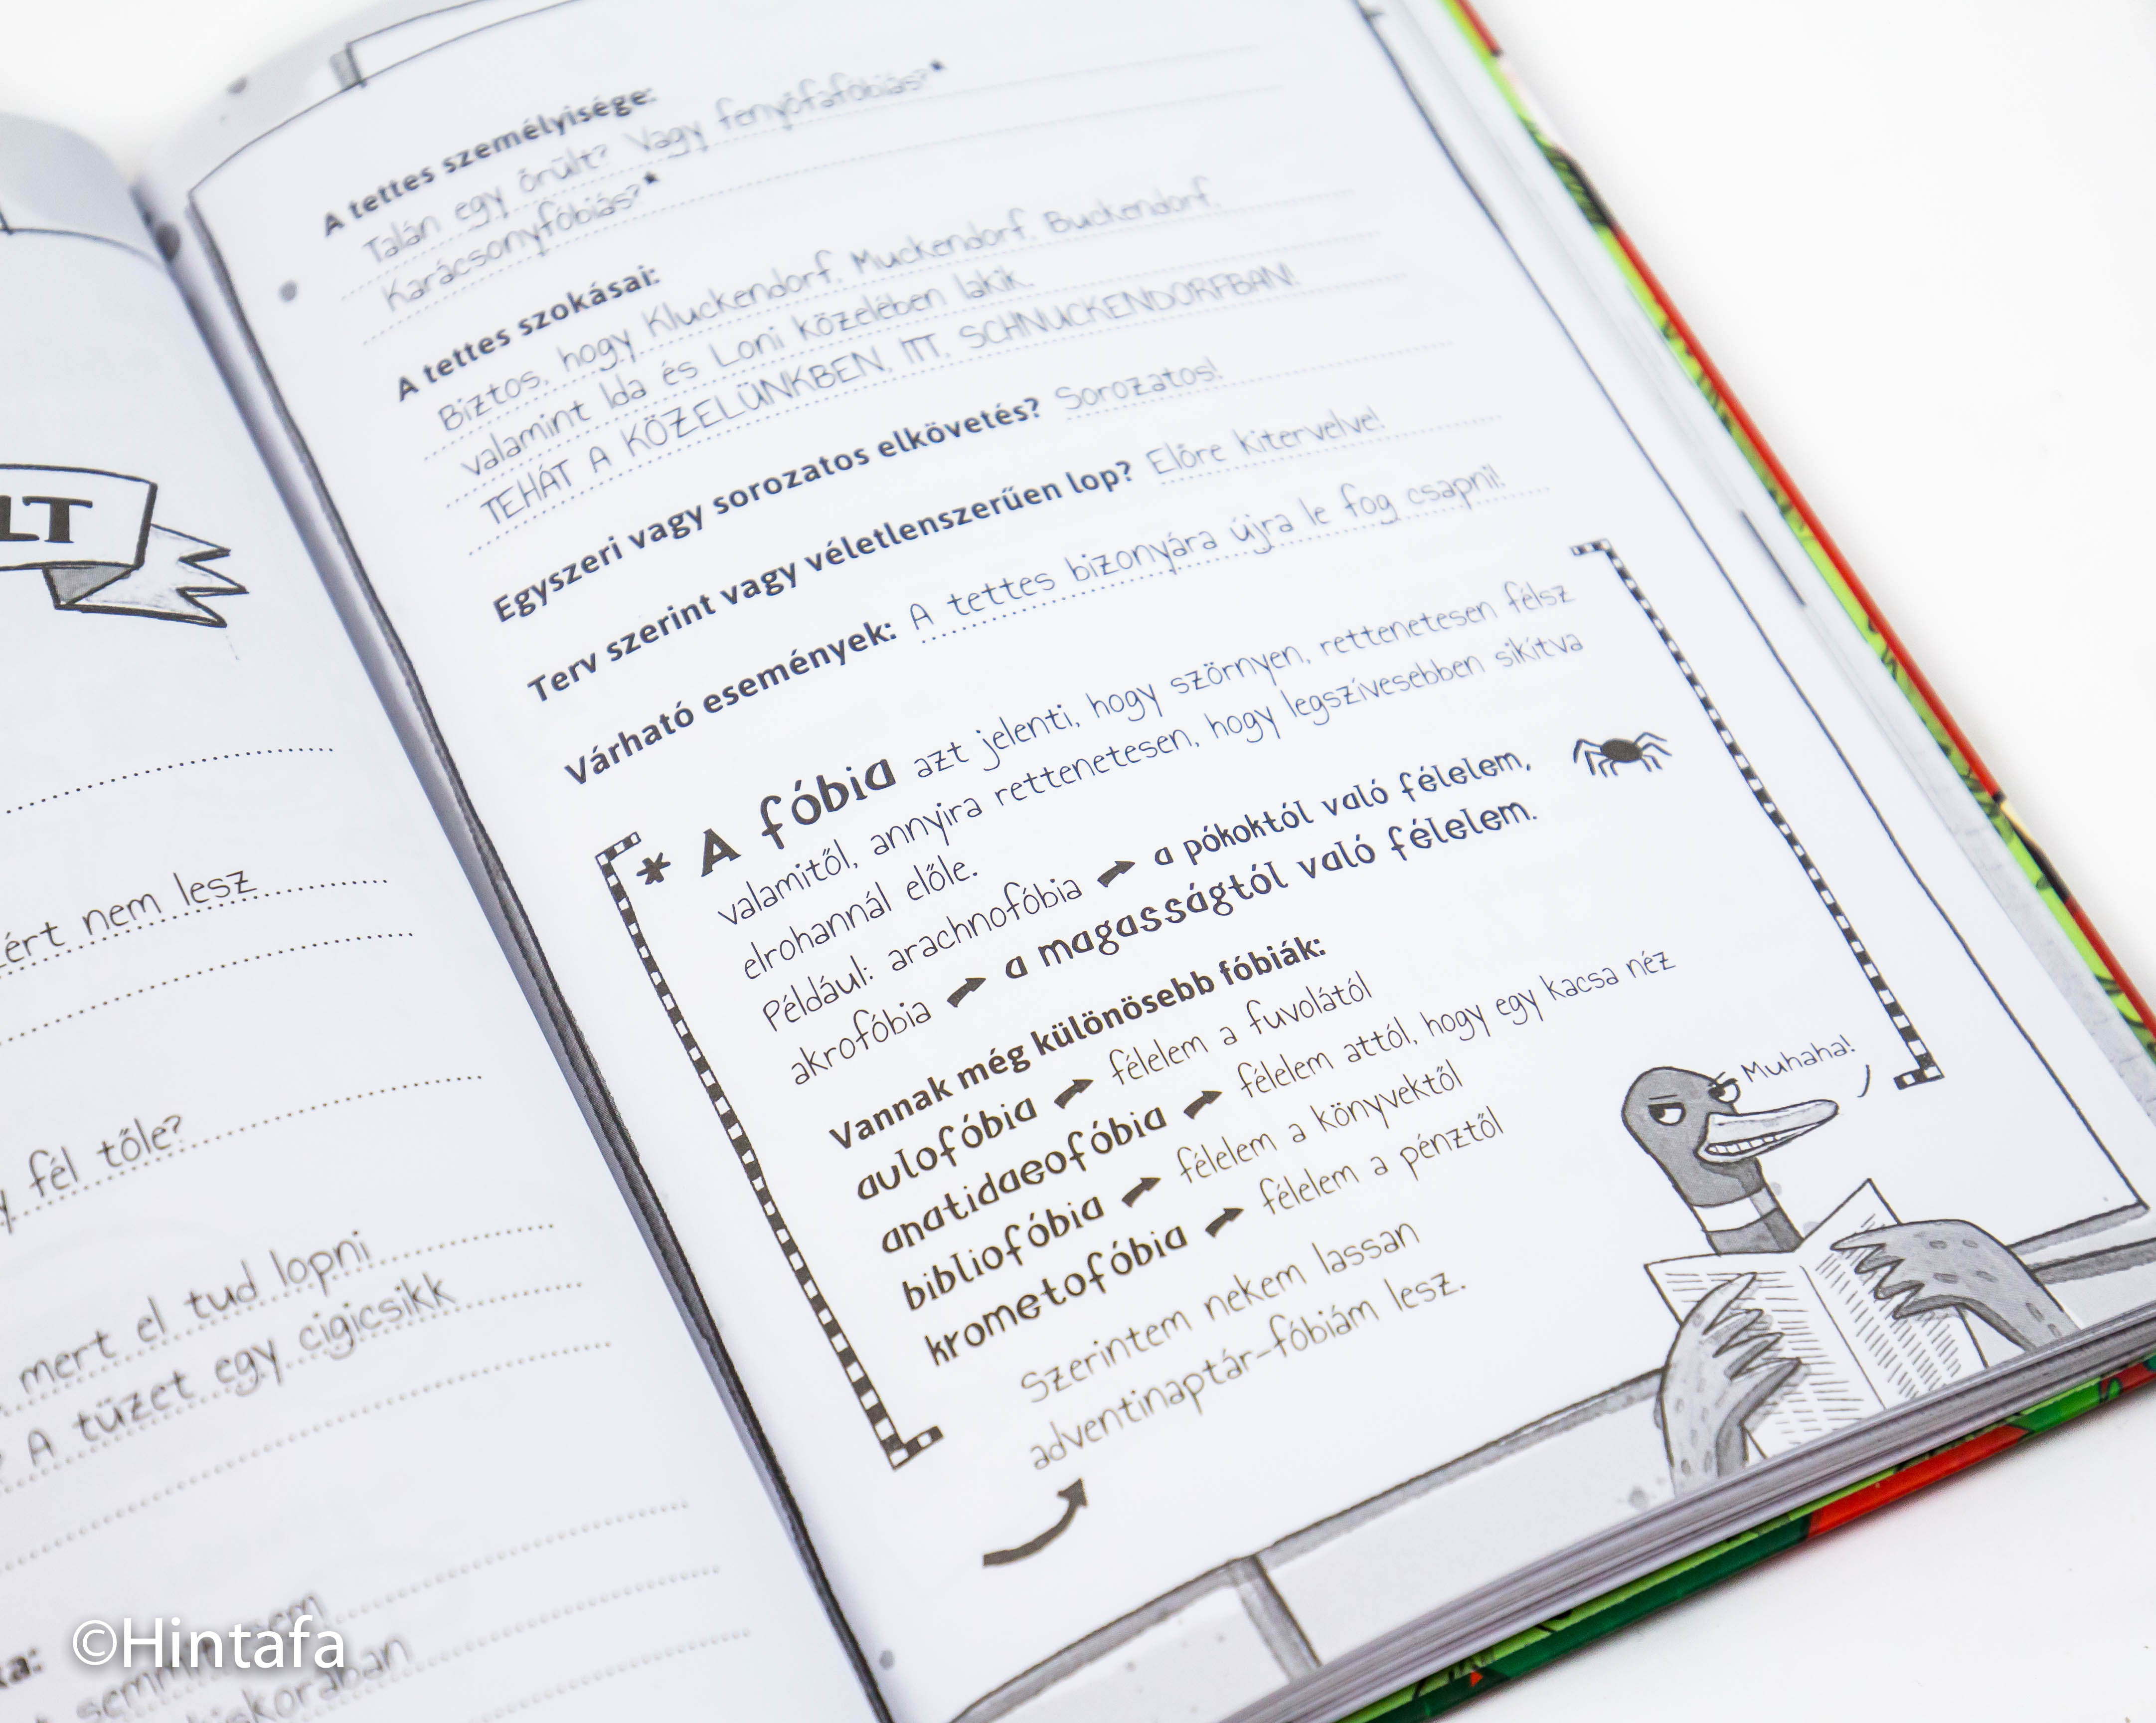 LT
ért nem lesz
fél tőle?
mert el tud lopni
A tüzet egy cigicsikk
A tettes személyisége:
Talán egy őrült? Vagy fenyőfafóbiás?*
Karácsonyfóbiás?*
A tettes szokásai:
Biztos, hogy Kluckendorf, Muckendorf, Buckendorf,
valamint Ida és Loni közelében lakik.
TEHÁT A KÖZELÜNKBEN, ITT, SCHNUCKENDORFBAN!
Egyszeri vagy sorozatos elkövetés? Sorozatos!
Terv szerint vagy véletlenszerűen lop? Előre kitervelve!
Várható események: A tettes bizonyára újra le fog csapni!
* A fóbia azt jelenti, hogy szörnyen, rettenetesen félsz
valamitől, annyira rettenetesen, hogy legszívesebben sikítva
elrohannál előle.
Például: arachnofóbia ➡ a pókoktól való félelem,
akrofóbia ➡ a magasságtól való félelem.
Vannak még különösebb fóbiák:
aulofóbia ➡ félelem a fuvolától
anatidaeofóbia ➡ félelem attól, hogy egy kacsa néz
bibliofóbia ➡ félelem a könyvektől
krometofóbia ➡ félelem a pénztől
Muhaha!
Szerintem nekem lassan
adventinaptár-fóbiám lesz.
©Hintafa